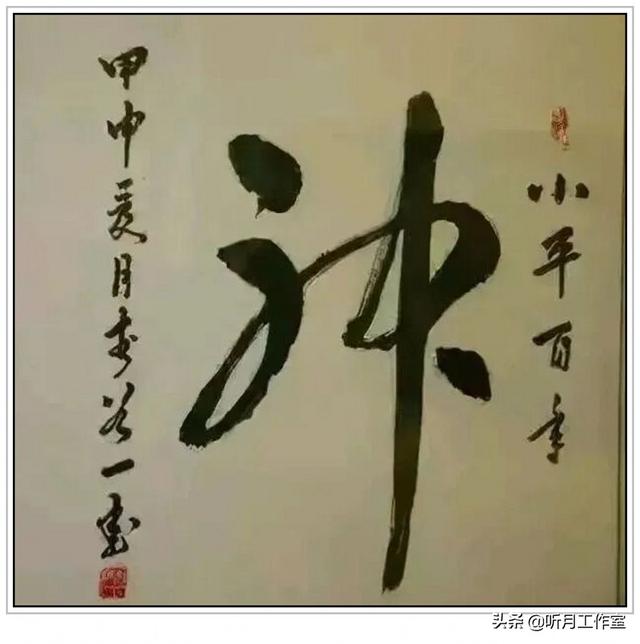 小平百年
神
甲申夏月李谷一书
头条 @听月工作室